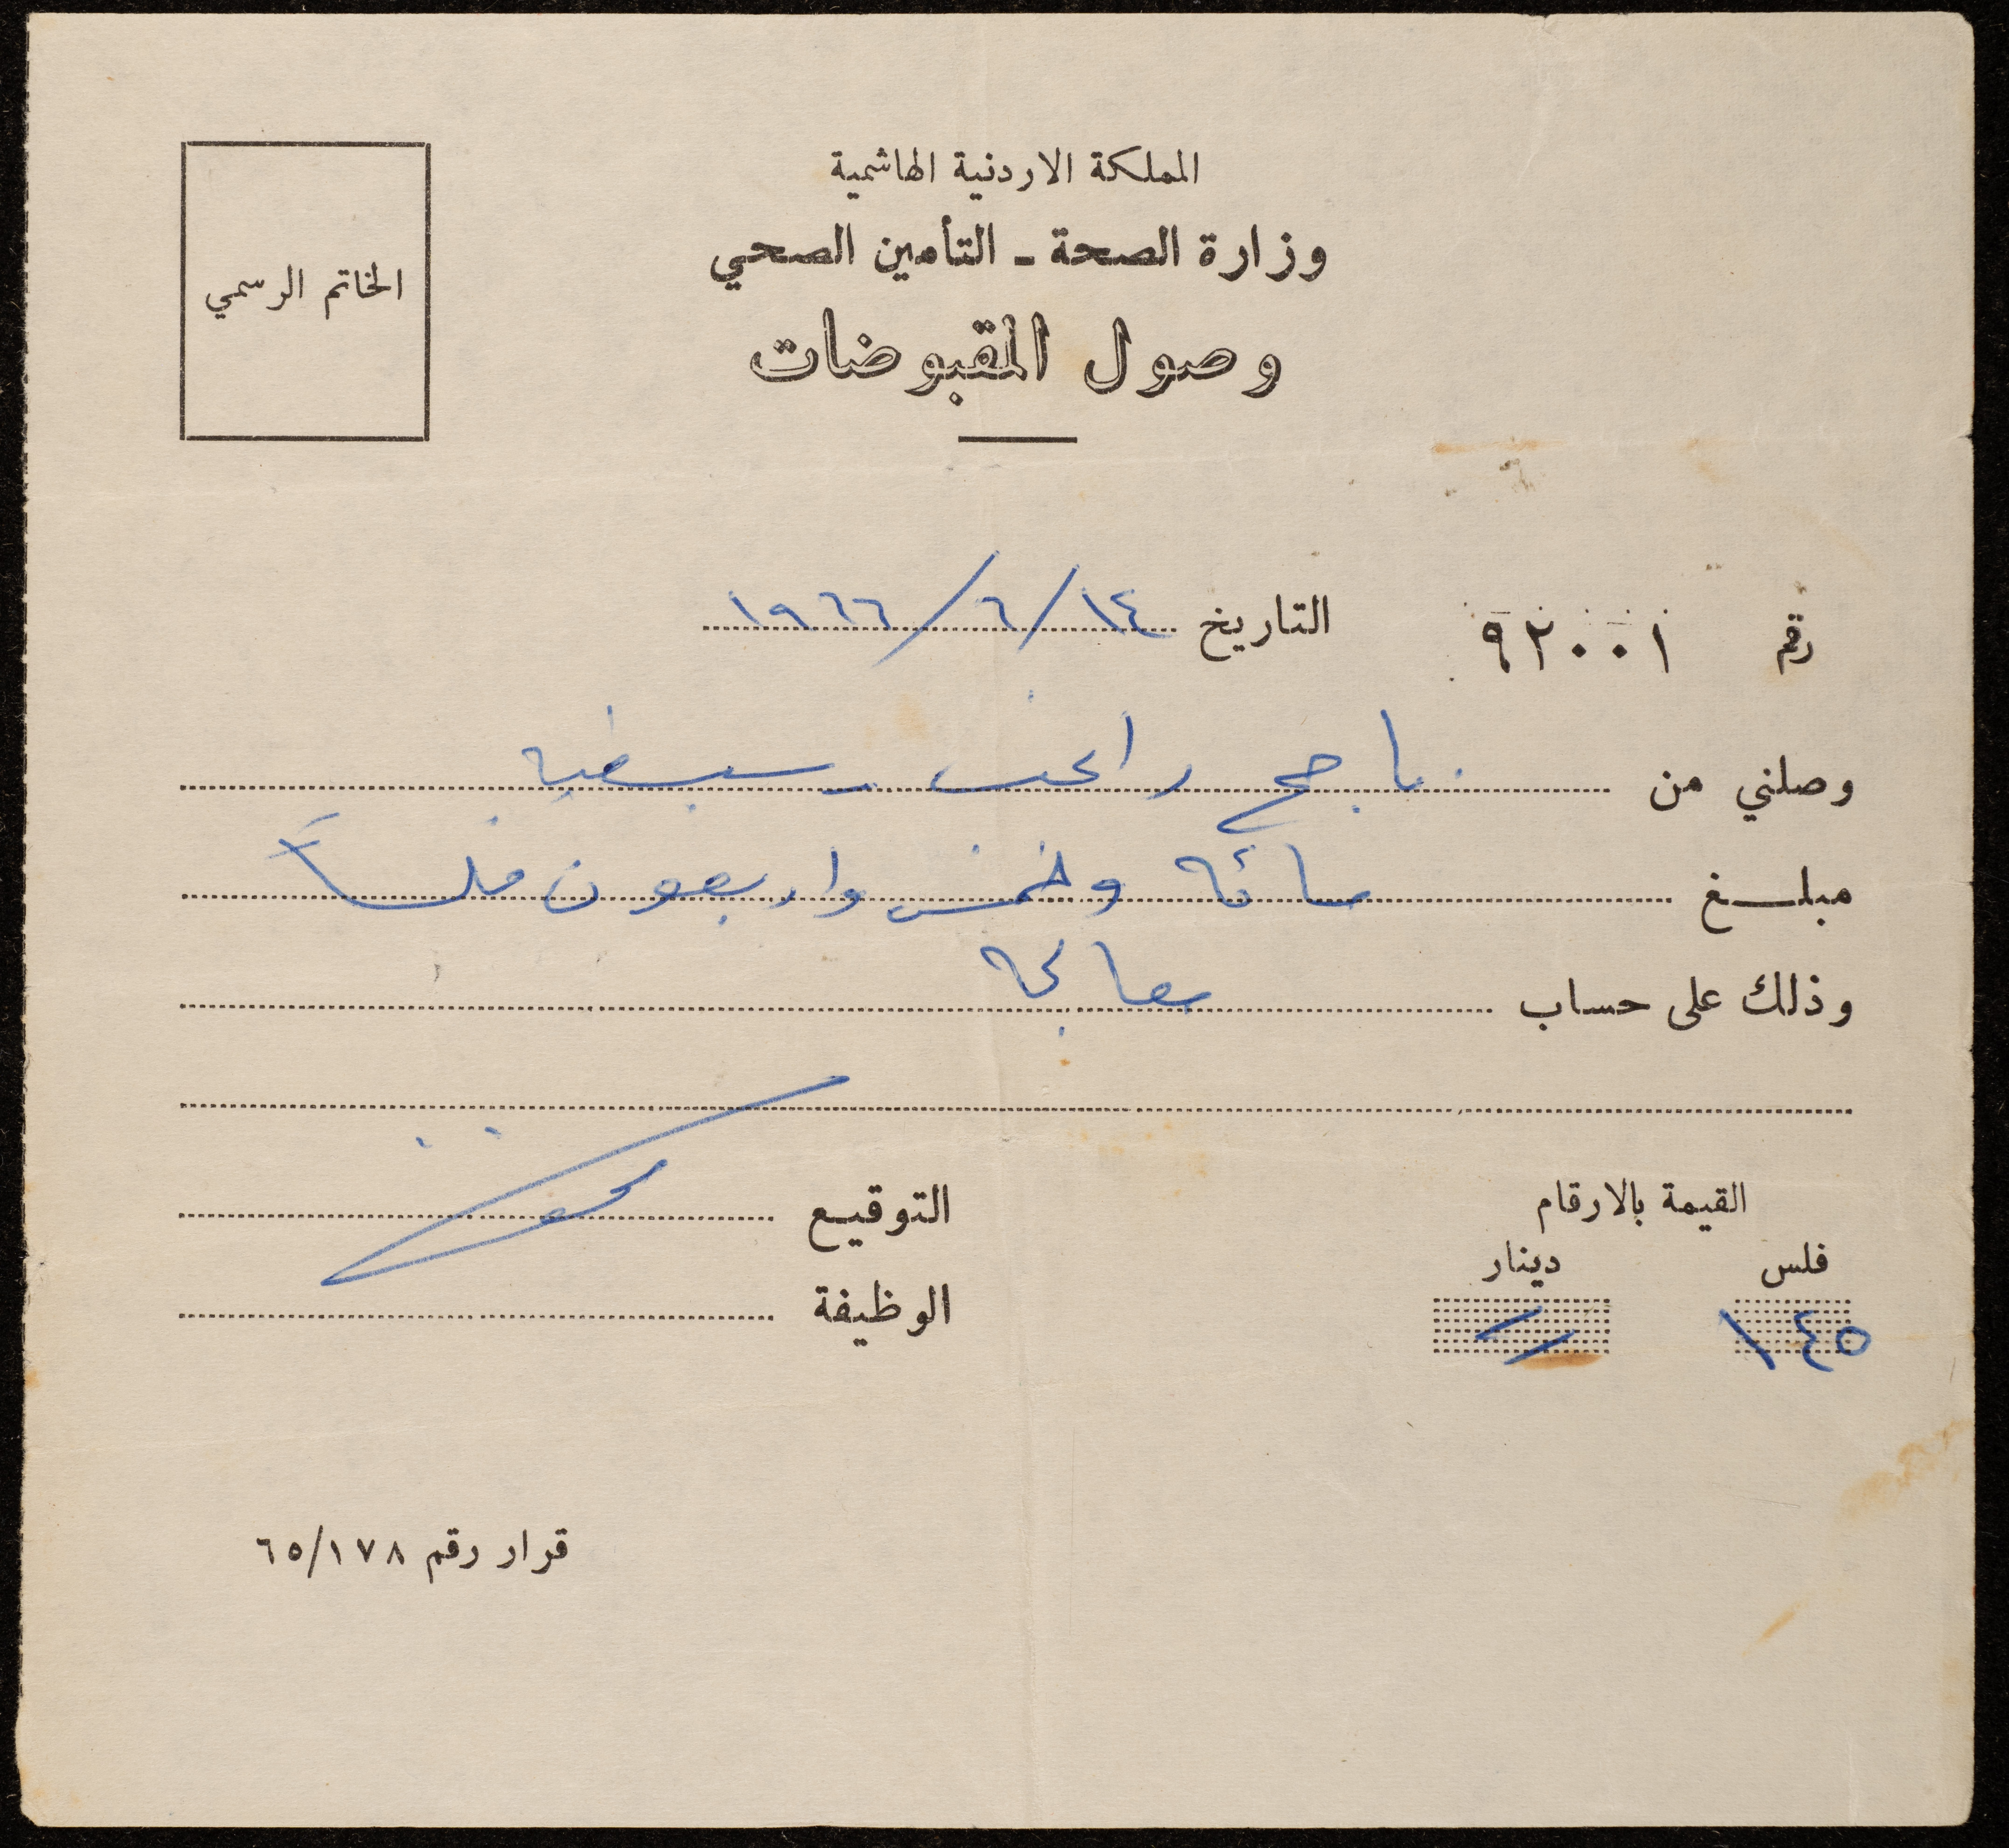 المملكة الاردنية الهاشمية
وزارة الصحة - التأمين الصحي
وصول المقبوضات
الخاتم الرسمي
رقم ٩٢٠٠١ التاريخ ١٤/٦/١٩٦٦
وصلني من ناجح راغب
مبلغ مائه وخمس واربعون فلساً
وذلك على حساب معالجه
القيمة بالارقام
فلس دينار
١٤٥
التوقيع
الوظيفة
قرار رقم ٦٥/١٧٨